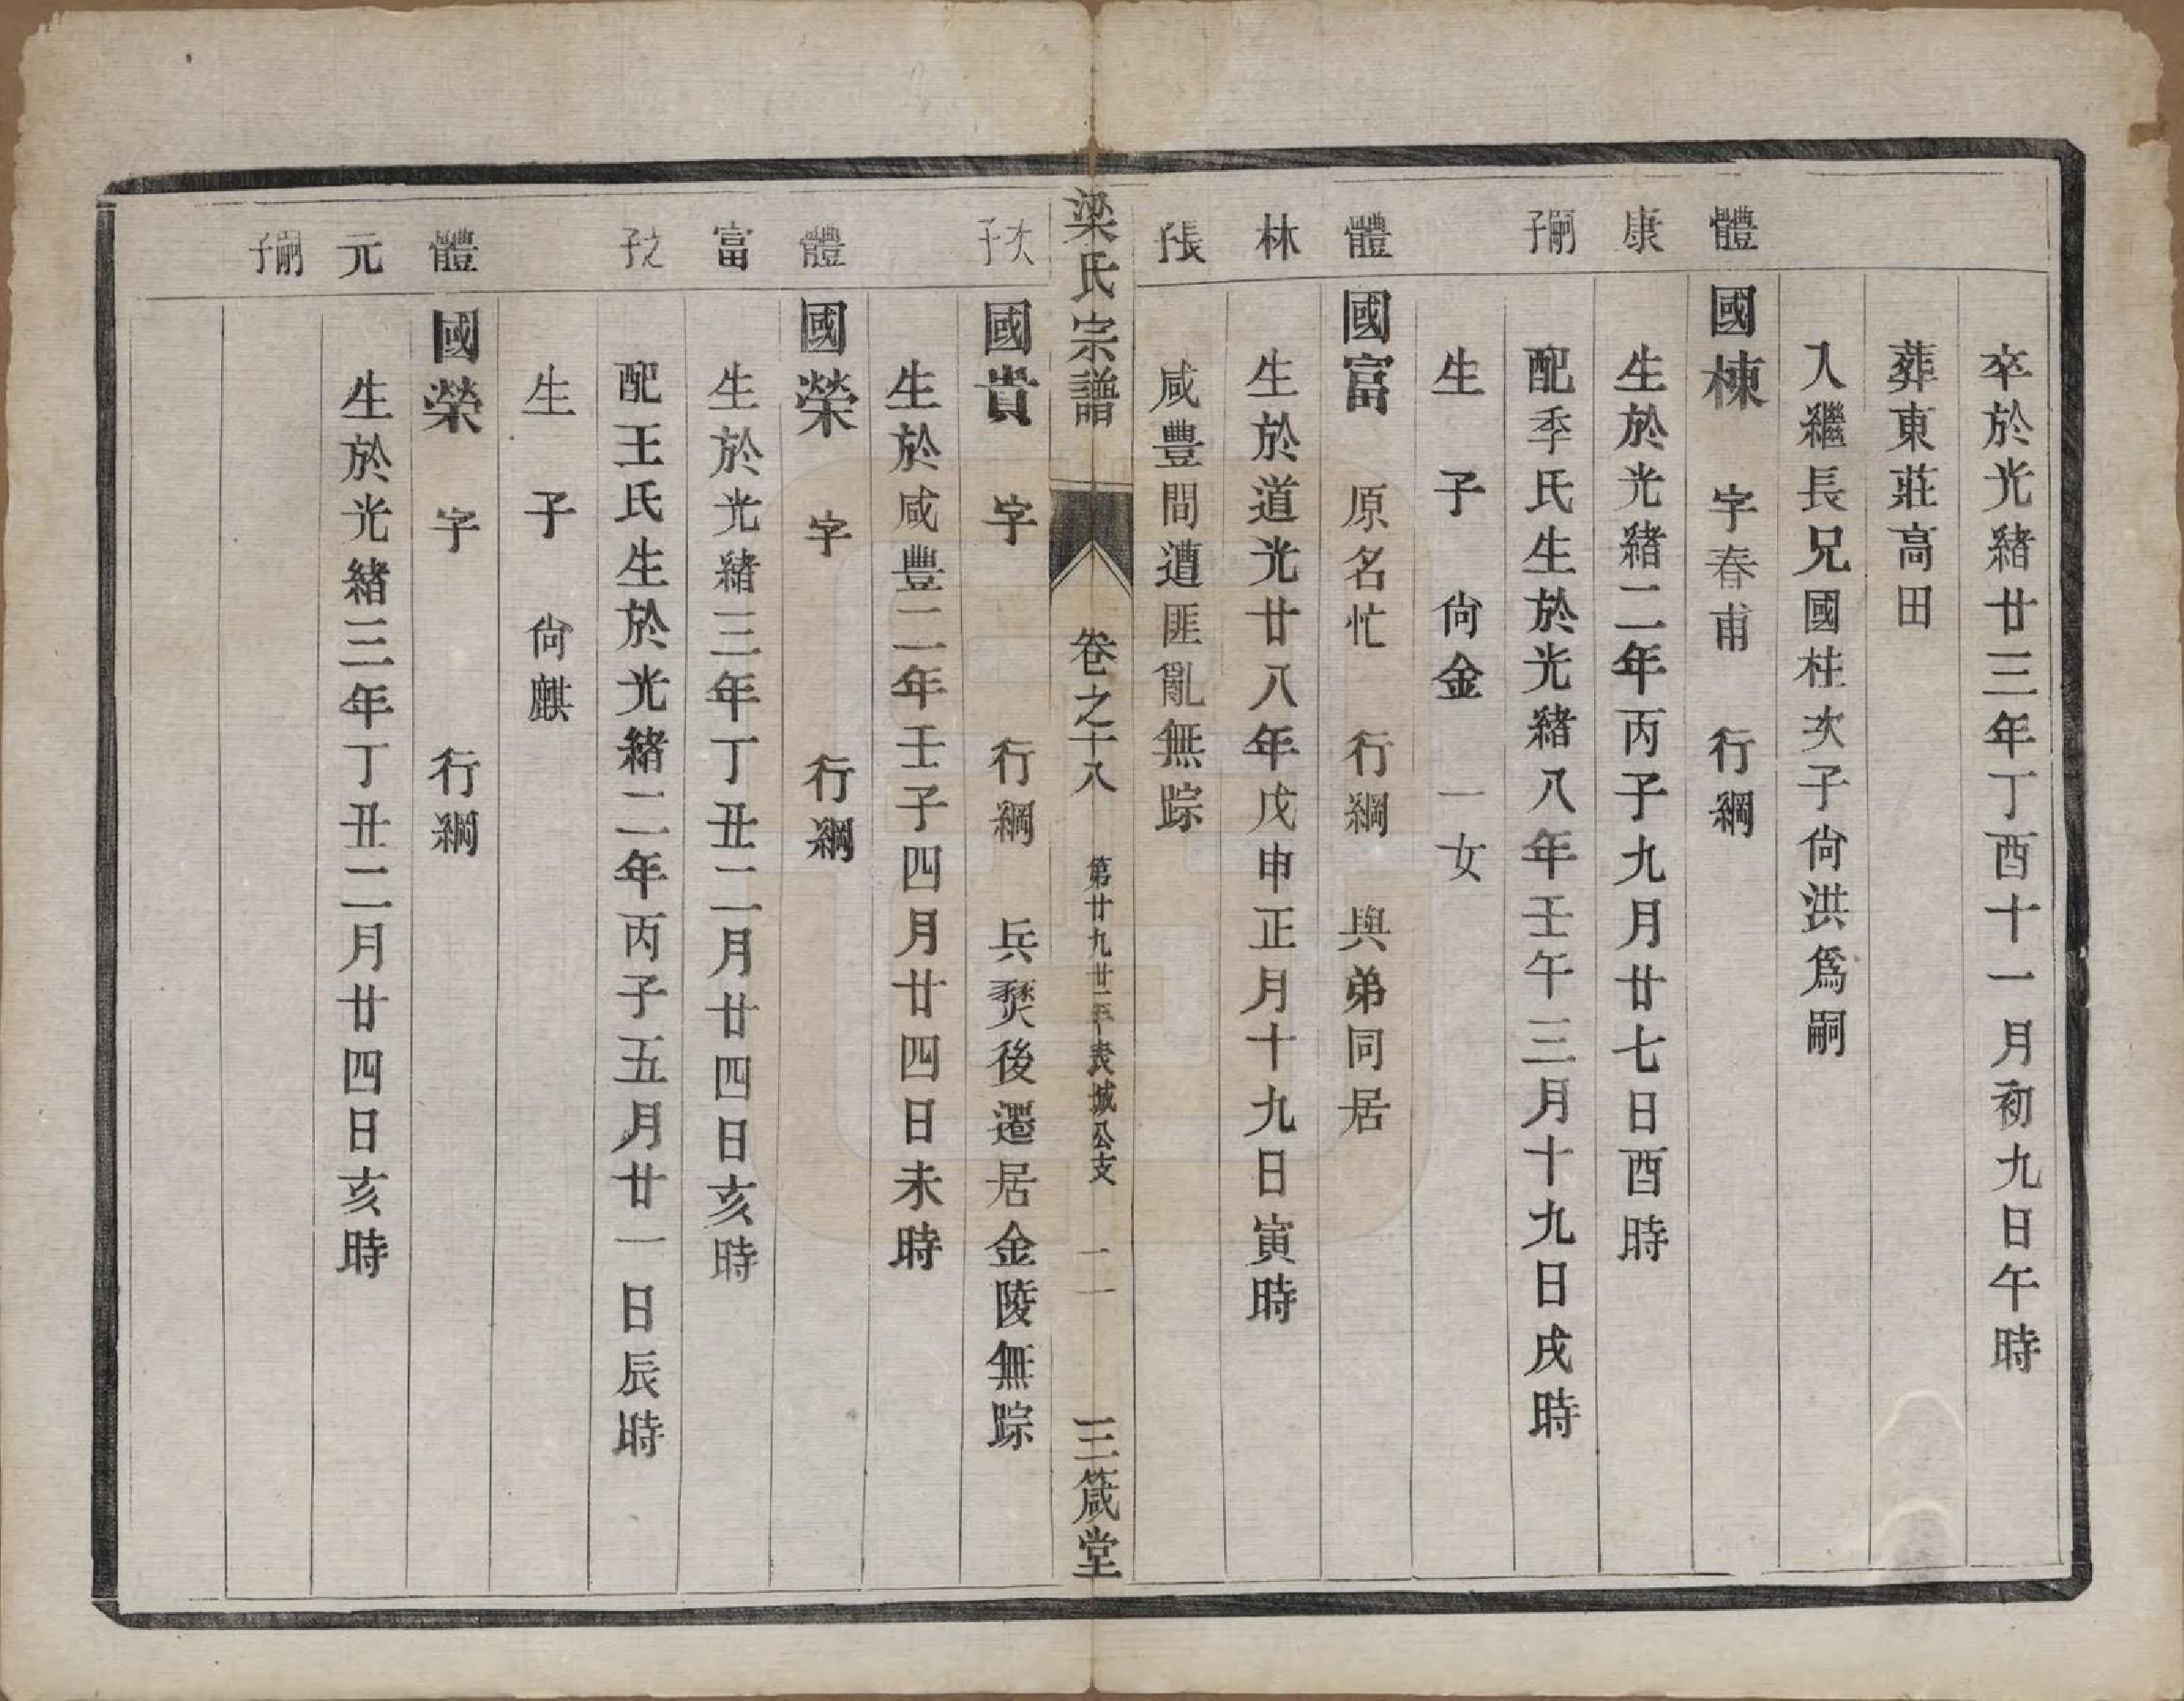 卒於光緒廿三年丁酉十一月初九日午時
葬東莊高田
入繼長兄國柱次子尙洪爲嗣
體 國棟 字春甫 行綱
康 生於光緒二年丙子九月廿七日酉時
嗣子 配季氏生於光緒八年壬午三月十九日戌時
生 子 尙金 一女
體 國富 原名忙 行綱 與弟同居
林 生於道光廿八年戊申正月十九日寅時
長子 咸豐間遭匪亂無踪
梁氏宗譜 卷之十八 第廿九 城公支 二 三箴堂
次子 國貴 字 行綱 兵燹後遷居金陵無踪
生於咸豐二年壬子四月廿四日未時
體 國榮 字 行綱
富 生於光緒三年丁丑二月廿四日亥時
之子 配王氏生於光緒二年丙子五月廿一日辰時
生 子 尙麒
體 國榮 字 行綱
元 生於光緒三年丁丑二月廿四日亥時
嗣子